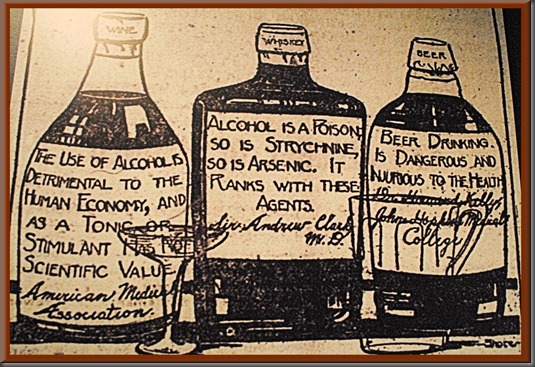 WINE
THE USE OF ALCOHOL IS
DETRIMENTAL TO THE
HUMAN ECONOMY, AND
AS A TONIC OR
STIMULANT HAS NOT
SCIENTIFIC VALUE
American Medical
Association.
WHISKEY
ALCOHOL IS A POISON;
SO IS STRYCHNINE,
SO IS ARSENIC. IT
RANKS WITH THESE
AGENTS.
Sir Andrew Clark
M.D.
BEER
BEER DRINKING
IS DANGEROUS AND
INJURIOUS TO THE HEALTH
Dr. Howard Kelly,
Johns Hopkins Medical
College